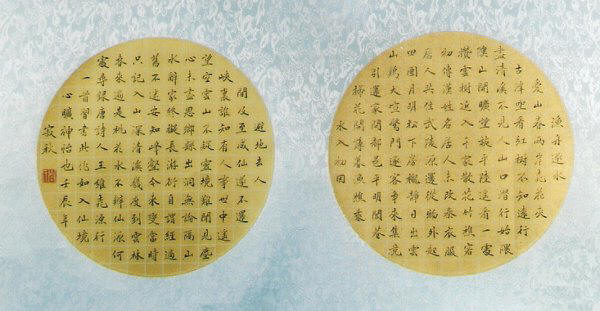 漁舟逐水
愛山春兩岸桃花夾
古津坐看紅樹不知遠行
盡清溪不見人山口潛行始隈
隩山開曠望旋平陸遙看一處
攢雲樹近入千家散花竹樵客
初傳漢姓名居人未改秦衣服
居人共住武陵原還從物外起
田園月明松下房櫳靜日出雲
犬喧驚客爭來集
引還家問都邑平明閭巷
掃花開薄暮魚樵乘
水入初因
避地去人
間及至成仙遂不還
峽裏誰知有人事世中遙
望空雲山不疑靈境難聞見塵
心未盡思鄉縣出洞無論隔山
水辭家終擬長游衍自謂經過
舊不迷安知峰壑今來變當時
只記入山深清溪幾度到雲林
春來遍是桃花水不辨仙源何
處尋錄唐詩人王維桃源行
一首習書此作如入仙境
心曠神怡也壬辰年
寂秋